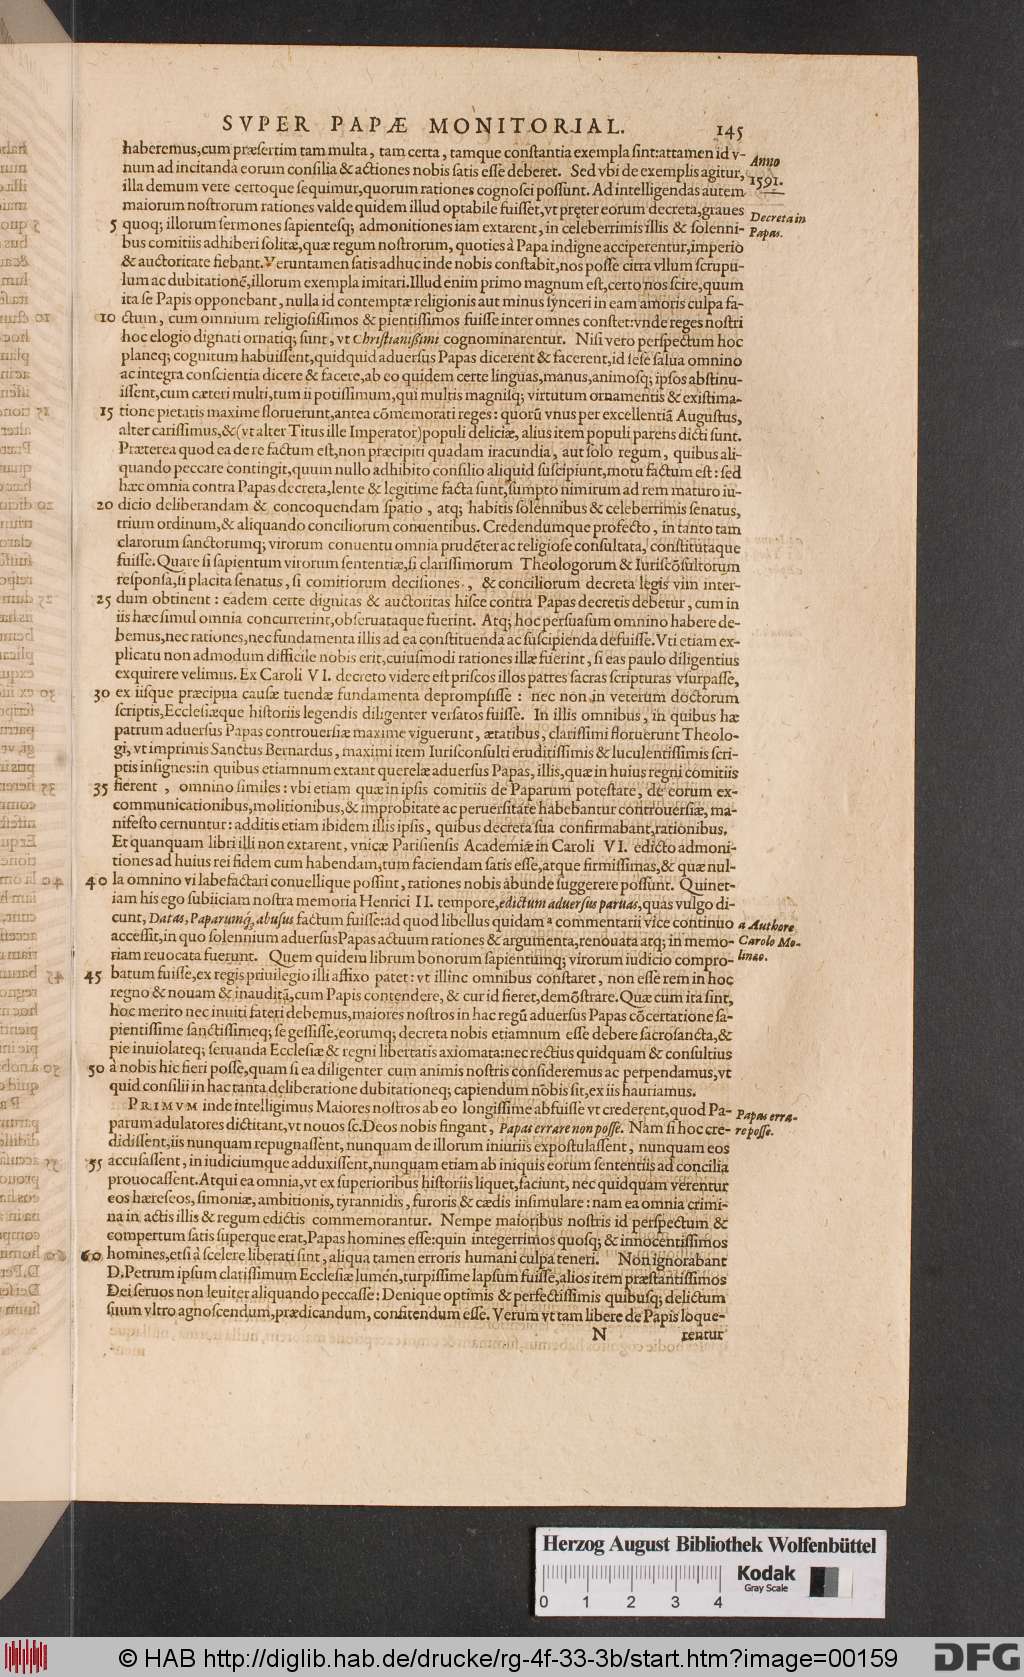 SVPER PAPÆ MONITORIAL. 145
haberemus,cum præſertim tam multa, tam certa, tamque conſtantia exempla ſint:attamen id v-
num ad incitanda eorum conſilia & actiones nobis ſatis eſſe deberet. Sed vbi de exemplis agitur,
Anno
1591.
illa demum vere certoque ſequimur,quorum rationes cognoſci poſſunt. Ad intelligendas autem
maiorum noſtrorum rationes valde quidem illud optabile fuiſſet,vt pręter eorum decreta,graues
Decreta in
Papas.
5 quoq; illorum ſermones ſapienteſq; admonitiones iam extarent, in celeberrimis illis & ſolenni-
bus comitiis adhiberi ſolitæ,quæ regum noſtrorum, quoties à Papa indigne acciperentur,imperio
& auctoritate fiebant.Veruntamen ſatis adhuc inde nobis conſtabit,nos poſſe citra vllum ſcrupu-
lum ac dubitationē,illorum exempla imitari.Illud enim primo magnum eſt,certo nos ſcire,quum
ita ſe Papis opponebant, nulla id contemptæ religionis aut minus ſynceri in eam amoris culpa fa-
10 ctum, cum omnium religioſiſſimos & pientiſſimos fuiſſe inter omnes conſtet:vnde reges noſtri
hoc elogio dignati ornatiq; ſunt, vt Chriſtianißimi cognominarentur. Niſi vero perſpectum hoc
planeq; cognitum habuiſſent,quidquid aduerſus Papas dicerent & facerent,id ſeſe ſalua omnino
ac integra conſcientia dicere & facere,ab eo quidem certe linguas,manus,animoſq; ipſos abſtinu-
iſſent,cum cæteri multi,tum ii potiſſimum,qui multis magniſq; virtutum ornamentis & exiſtima-
15 tione pietatis maxime floruerunt,antea cōmemorati reges: quorū vnus per excellentiā Auguſtus,
alter cariſſimus,&(vt alter Titus ille Imperator)populi deliciæ, alius item populi parens dicti ſunt.
Præterea quod ea de re factum eſt,non præcipiti quadam iracundia, aut ſolo regum, quibus ali-
quando peccare contingit,quum nullo adhibito conſilio aliquid ſuſcipiunt,motu factum eſt: ſed
hæc omnia contra Papas decreta,lente & legitime facta ſunt,ſumpto nimirum ad rem maturo iu-
20 dicio deliberandam & concoquendam ſpatio, atq; habitis ſolennibus & celeberrimis ſenatus,
trium ordinum,& aliquando conciliorum conuentibus. Credendumque profecto, in tanto tam
clarorum ſanctorumq; virorum conuentu omnia prudēter ac religioſe conſultata, conſtitutaque
fuiſſe.Quare ſi ſapientum virorum ſententiæ,ſi clariſſimorum Theologorum & Iuriſcōſultorum
reſponſa,ſi placita ſenatus, ſi comitiorum deciſiones, & conciliorum decreta legis vim inter-
25 dum obtinent: eadem certe dignitas & auctoritas hiſce contra Papas decretis debetur, cum in
iis hæc ſimul omnia concurrerint,obſeruataque fuerint. Atq; hoc perſuaſum omnino habere de-
bemus,nec rationes,nec fundamenta illis ad ea conſtituenda ac ſuſcipienda defuiſſe.Vti etiam ex-
plicatu non admodum difficile nobis erit,cuiuſmodi rationes illæ fuerint, ſi eas paulo diligentius
exquirere velimus. Ex Caroli VI. decreto videre eſt priſcos illos patres ſacras ſcripturas vſurpaſſe,
30 ex iiſque præcipua cauſæ tuendæ fundamenta deprompſiſſe: nec non in veterum doctorum
ſcriptis,Eccleſiæque hiſtoriis legendis diligenter verſatos fuiſſe. In illis omnibus, in quibus hæ
patrum aduerſus Papas controuerſiæ maxime viguerunt, ætatibus, clariſſimi floruerunt Theolo-
gi, vt imprimis Sanctus Bernardus, maximi item Iuriſconſulti eruditiſſimis & luculentiſſimis ſcri-
ptis inſignes:in quibus etiamnum extant querelæ aduerſus Papas, illis,quæ in huius regni comitiis
35 fierent, omnino ſimiles: vbi etiam quæ in ipſis comitiis de Paparum poteſtate, de eorum ex-
communicationibus,molitionibus,& improbitate ac peruerſitate habebantur controuerſiæ, ma-
nifeſto cernuntur: additis etiam ibidem illis ipſis, quibus decreta ſua confirmabant,rationibus.
Et quanquam libri illi non extarent, vnicæ Pariſienſis Academiæ in Caroli VI. edicto admoni-
tiones ad huius rei fidem cum habendam,tum faciendam ſatis eſſe,atque firmiſſimas,& quæ nul-
40 la omnino vi labefactari conuellique poſſint, rationes nobis abunde ſuggerere poſſunt. Quinet-
iam his ego ſubiiciam noſtra memoria Henrici II. tempore,edictum aduerſus paruas,quas vulgo di-
cunt, Datas, Paparumq; abuſus factum fuiſſe:ad quod libellus quidam a commentarii vice continuo
a Authore
Carolo Mo-
linæo.
acceſſit,in quo ſolennium aduerſus Papas actuum rationes & argumenta,renouata atq; in memo-
riam reuocata fuerunt. Quem quidem librum bonorum ſapientumq; virorum iudicio compro-
45 batum fuiſſe,ex regis priuilegio illi affixo patet: vt illinc omnibus conſtaret, non eſſe rem in hoc
regno & nouam & inauditā,cum Papis contendere, & cur id fieret,demōſtrare.Quæ cum ita ſint,
hoc merito nec inuiti fateri debemus,maiores noſtros in hac regū aduerſus Papas cōcertatione ſa-
pientiſſime ſanctiſſimeq; ſe geſſiſſe,eorumq; decreta nobis etiamnum eſſe debere ſacroſancta,&
pie inuiolateq; ſeruanda Eccleſiæ & regni libertatis axiomata:nec rectius quidquam & conſultius
50 à nobis hic fieri poſſe,quam ſi ea diligenter cum animis noſtris conſideremus ac perpendamus,vt
quid conſilii in hac tanta deliberatione dubitationeq; capiendum nobis ſit,ex iis hauriamus.
PRIMVM inde intelligimus Maiores noſtros ab eo longiſſime abfuiſſe vt crederent,quod Pa-
Papas erra-
re poſſe.
parum adulatores dictitant,vt nouos ſc.Deos nobis fingant, Papas errare non poſſe. Nam ſi hoc cre-
didiſſent,iis nunquam repugnaſſent,nunquam de illorum iniuriis expoſtulaſſent, nunquam eos
55 accuſaſſent, in iudiciumque adduxiſſent,nunquam etiam ab iniquis eorum ſententiis ad concilia
prouocaſſent.Atqui ea omnia,vt ex ſuperioribus hiſtoriis liquet,faciunt, nec quidquam verentur
eos hæreſeos, ſimoniæ, ambitionis, tyrannidis, furoris & cædis inſimulare: nam ea omnia crimi-
na in actis illis & regum edictis commemorantur. Nempe maioribus noſtris id perſpectum &
compertum ſatis ſuperque erat,Papas homines eſſe:quin integerrimos quoſq; & innocentiſſimos
60 homines,etſi à ſcelere liberati ſint, aliqua tamen erroris humani culpa teneri. Non ignorabant
D.Petrum ipſum clariſſimum Eccleſiæ lumen,turpiſſime lapſum fuiſſe,alios item præſtantiſſimos
Dei ſeruos non leuiter aliquando peccaſſe: Denique optimis & perfectiſſimis quibuſq; delictum
ſuum vltro agnoſcendum,prædicandum, confitendum eſſe. Verum vt tam libere de Papis loque-
N rentur
Herzog August Bibliothek Wolfenbüttel
Kodak
Gray Scale
0 1 2 3 4
© HAB http://diglib.hab.de/drucke/rg-4f-33-3b/start.htm?image=00159
DFG